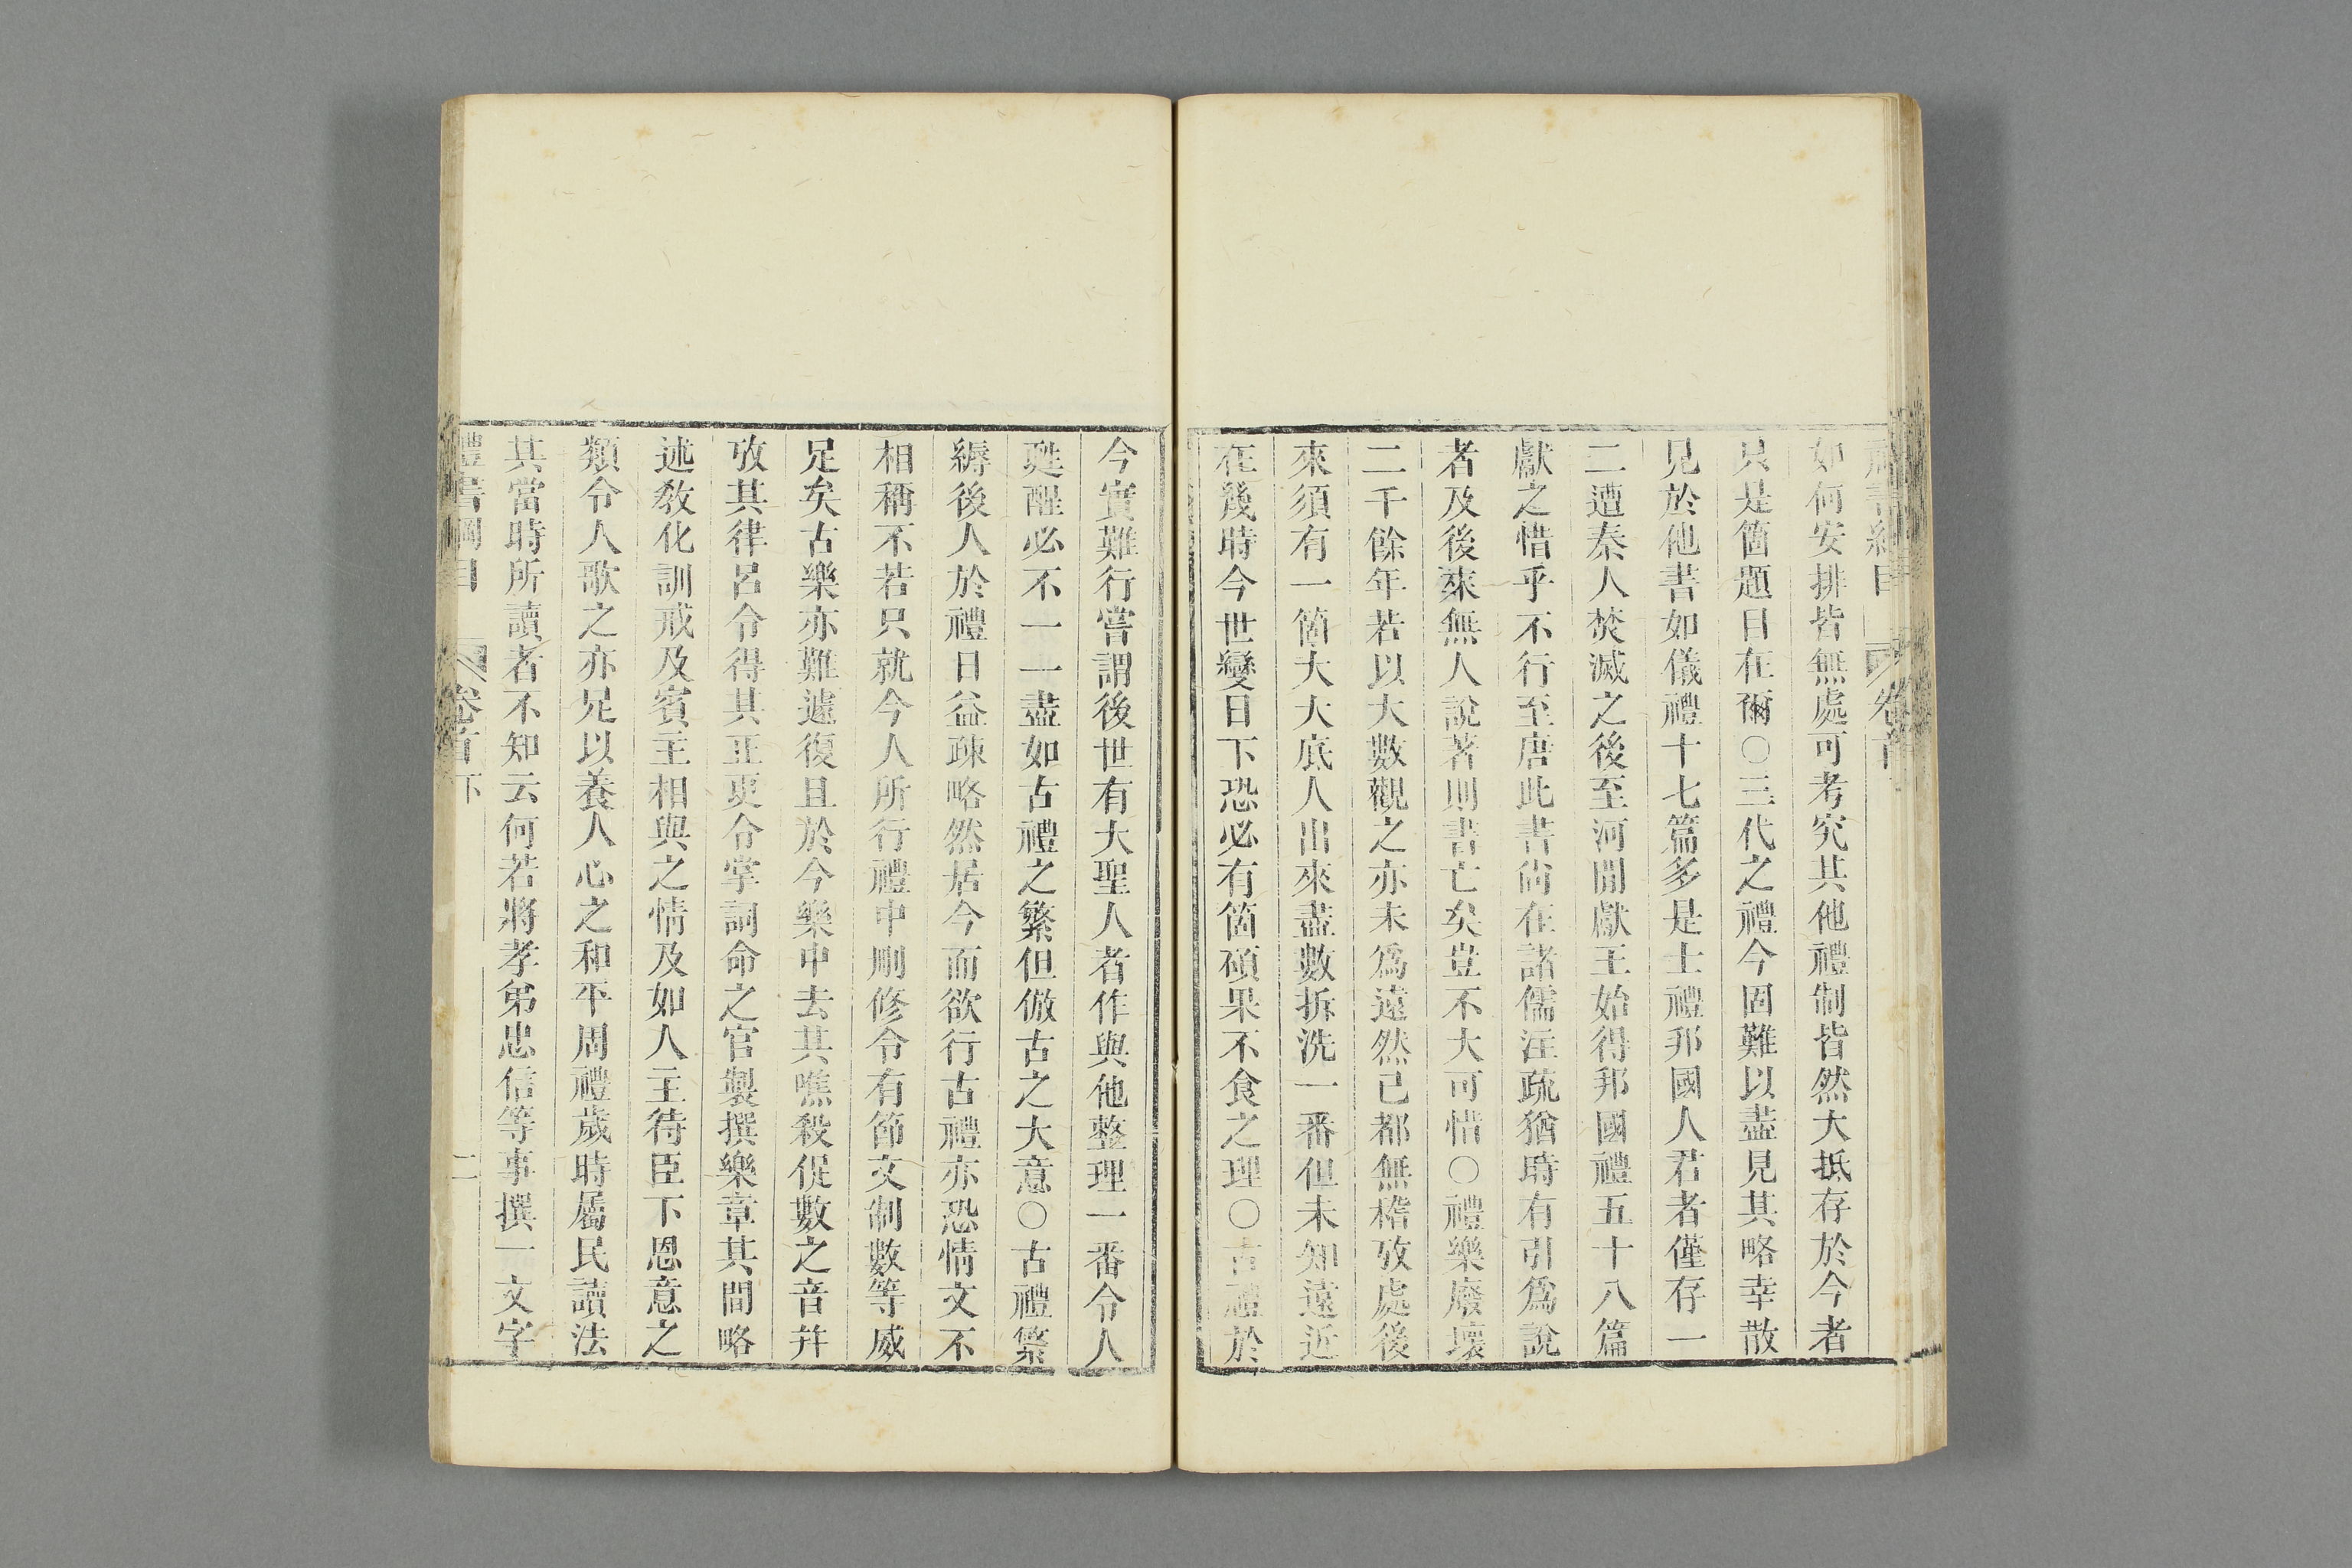 禮書綱目 卷首
如何安排皆無處可考究其他禮制皆然大抵存於今者
只是箇題目在爾○三代之禮今固難以盡見其略幸散
見於他書如儀禮十七篇多是士禮邦國人君者僅存一
二遭秦人焚滅之後至河間獻王始得邦國禮五十八篇
獻之惜乎不行至唐此書尙在諸儒注疏猶時有引爲說
者及後來無人說著則書亡矣豈不大可惜○禮樂廢壞
二千餘年若以大數觀之亦未爲遠然已都無稽攷處後
來須有一箇大大底人出來盡數拆洗一番但未知遠近
在幾時今世變日下恐必有箇碩果不食之理○古禮於
今實難行嘗謂後世有大聖人者作與他整理一番令人
甦醒必不一一盡如古禮之繁但倣古之大意○古禮繁
縟後人於禮日益疎略然居今而欲行古禮亦恐情文不
相稱不若只就今人所行禮中刪修令有節文制數等威
足矣古樂亦難遽復且於今樂中去其噍殺促數之音幷
攷其律呂令得其正更令掌詞命之官製撰樂章其間略
述敎化訓戒及賓主相與之情及如人主待臣下恩意之
類令人歌之亦足以養人心之和平周禮歲時屬民讀法
其當時所讀者不知云何若將孝弟忠信等事撰一文字
禮書綱目 卷首下 二